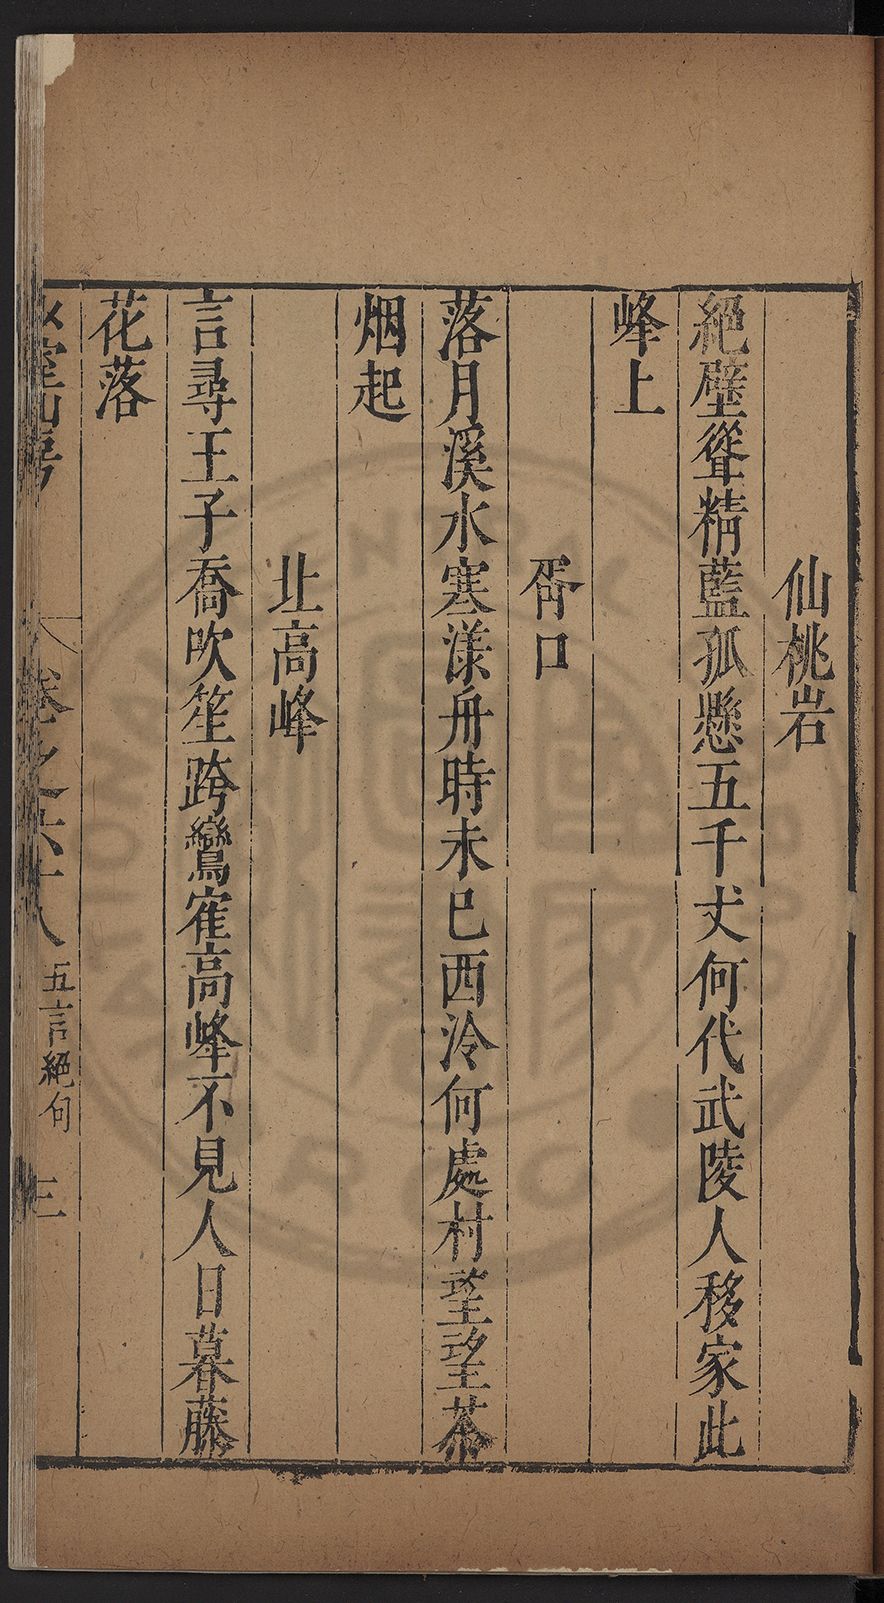 仙桃岩
絕壁聳精藍孤懸五千丈何代武陵人移家此
峰上
胥口
落月溪水寒漾舟時未已西泠何處村望望茶
烟起
北高峰
言尋王子喬吹笙跨鸞寉高峰不見人日暮藤
花落
山房
卷之六十八
五言絕句
三